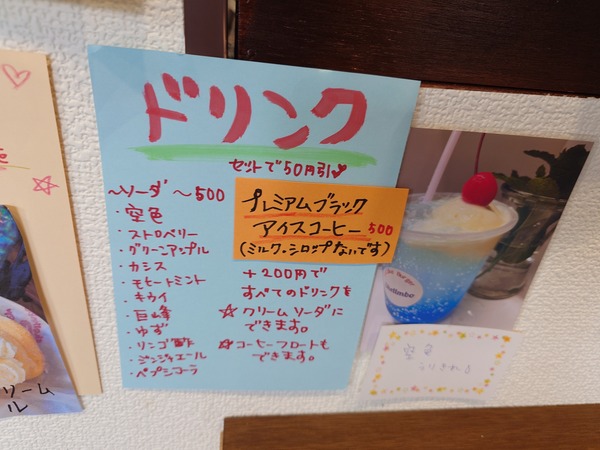 ドリンク
セットで50円引
〜ソーダ〜500
・空色
・ストロベリー
・グリーンアップル
・カシス
・モヒートミント
・キウイ
・巨峰
・ゆず
・リンゴ酢
・ジンジャエール
・ペプシコーラ
プレミアムブラック
アイスコーヒー 500
(ミルク、シロップないです)
+200円で
すべてのドリンクを
☆クリームソーダに
できます。
☆コーヒーフロートも
できます。
リーム
ル
空色